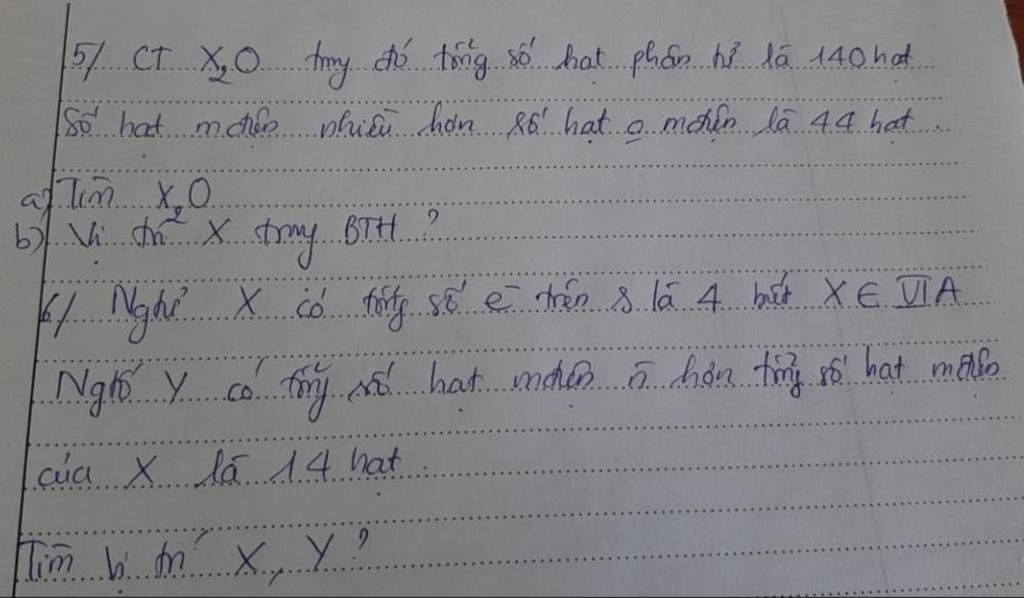 5/ CT X₂O trng đó tổng số hạt phân tử là 140 hạt
Số hạt mđiện nhiều hơn số hạt o mđiện là 44 hạt.
a) Tìm X₂O
b) Vị trí X trng BTH ?
6/ Ngtử X có tổng số e⁻ trên s là 4 biết X ∈ VIA
Ngtố Y có tổng số hạt mđiện n̄ hơn tổng số hạt mđiện
của X là 14 hạt.
Tìm vị trí X, Y ?